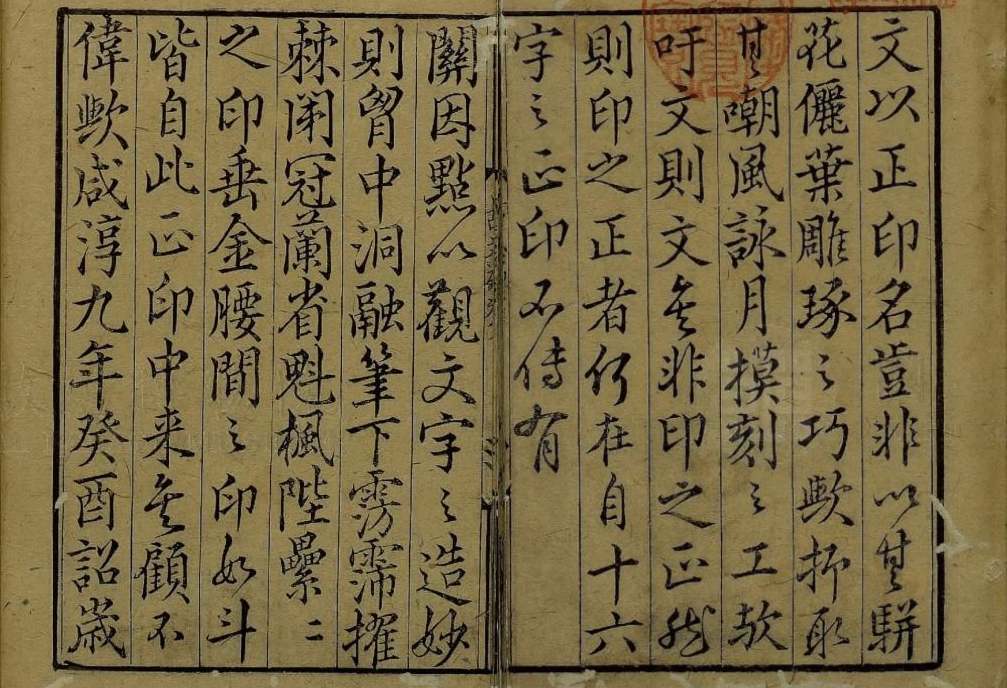 文以正印名豈非以其駢
花儷葉雕琢之巧歟抑取
其嘲風詠月摸刻之工歟
吁文則文矣非印之正然
則印之正者何在自十六
字之正印不傳有
關因點以觀文字之造妙
則胷中洞融筆下雱霈擢
棘闈冠蘭省魁楓陛纍〻
之印垂金腰間之印如斗
皆自此正印中来矣顧不
偉歟咸淳九年癸酉詔歳